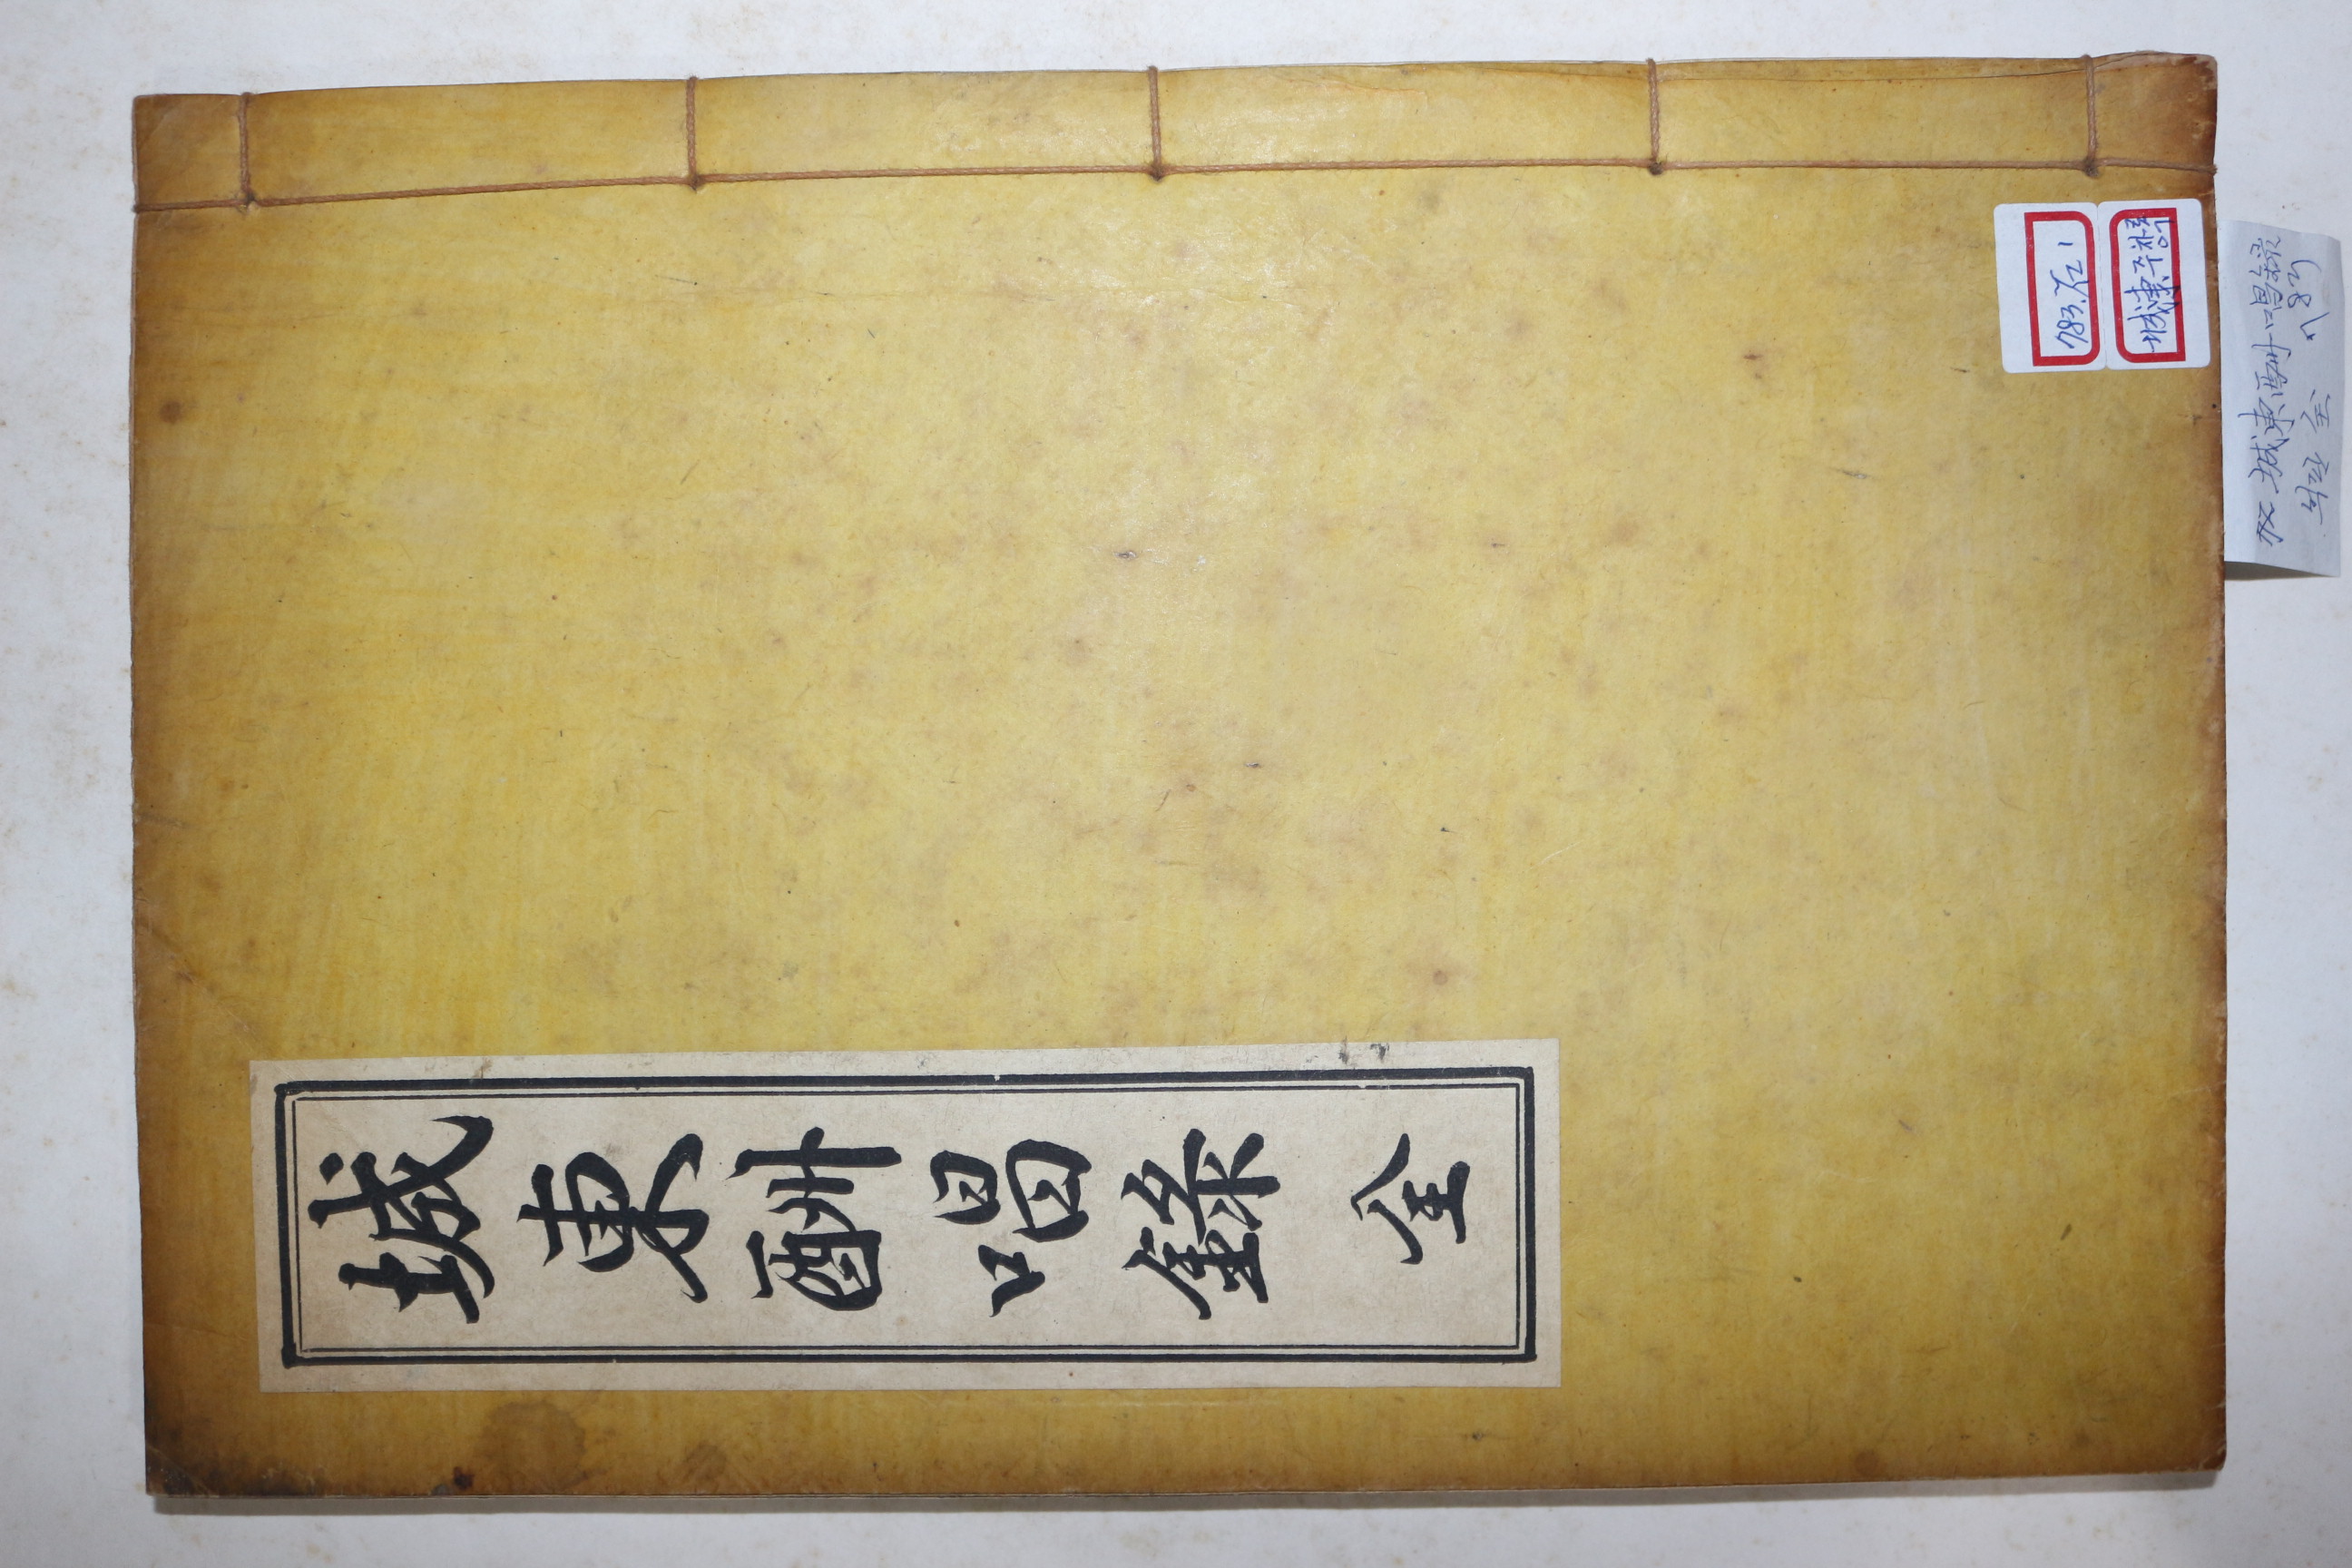 城東酬唱錄 全
783.石 1
城東주창록
城東酬唱錄
석판 全 783